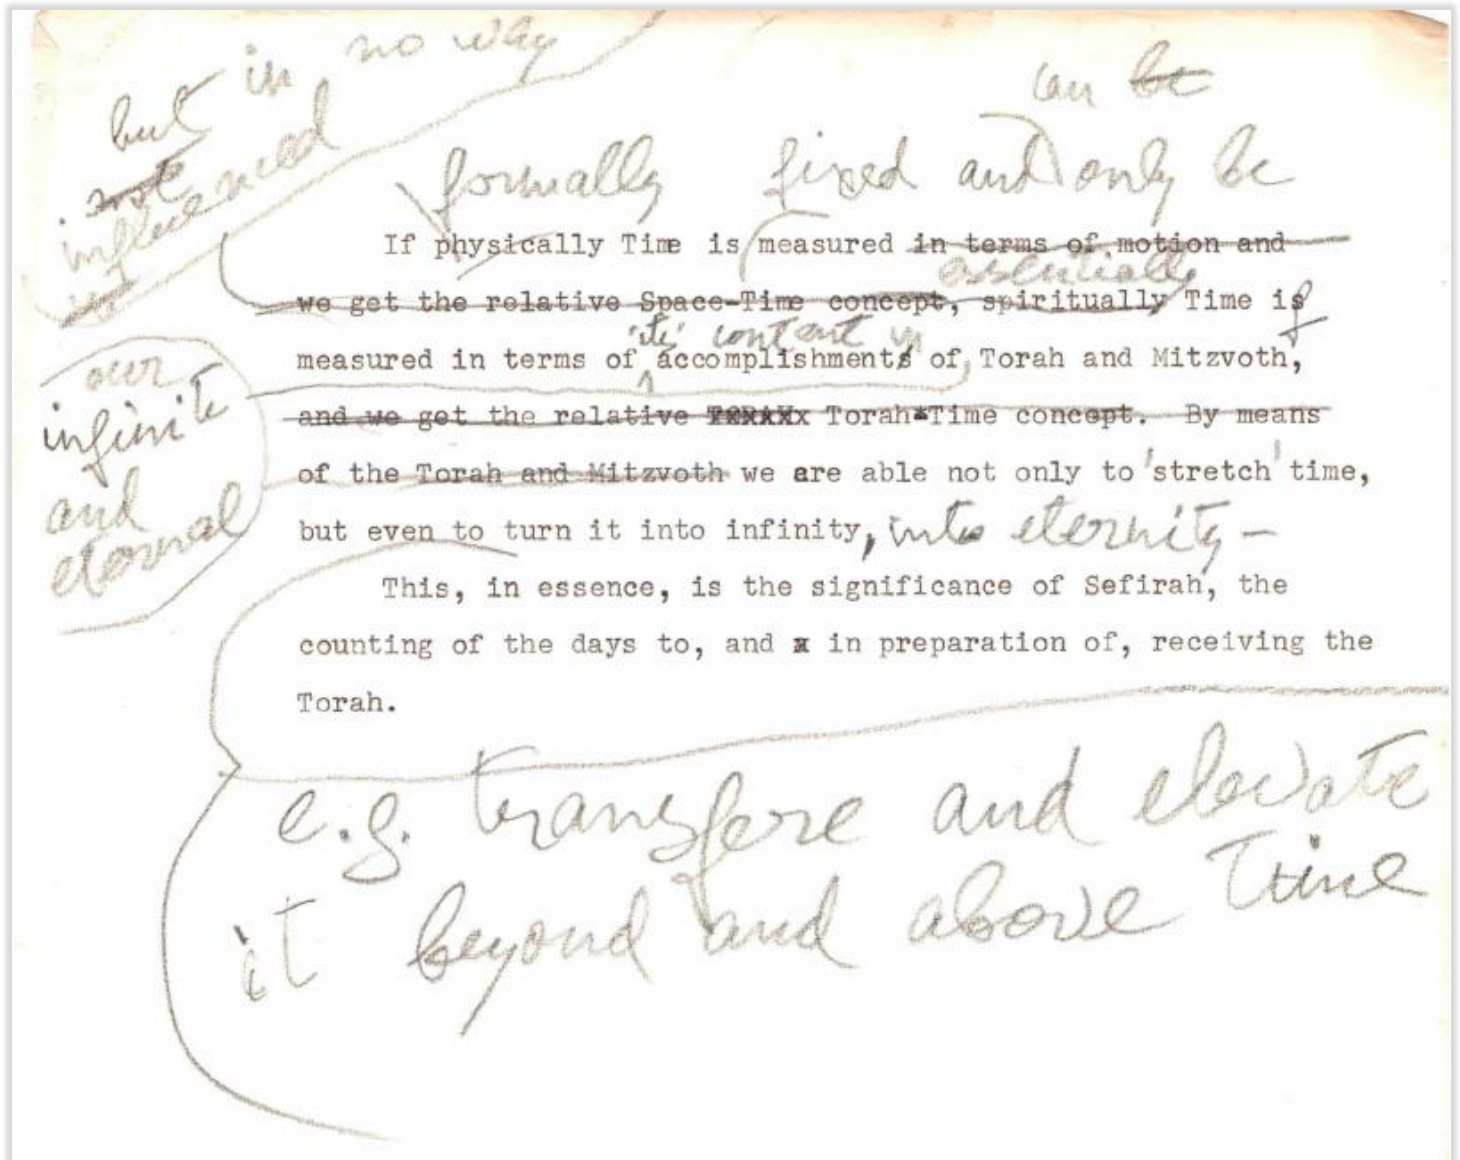 but in no way
not
influenced
can be
formally fixed and only be
If physically Time is measured in terms of motion and
essentially
we get the relative Space-Time concept, spiritually Time is
'its' content in
measured in terms of accomplishments of Torah and Mitzvoth,
our
infinite
and
eternal
and we get the relative Torah-Time concept. By means
of the Torah and Mitzvoth we are able not only to 'stretch' time,
but even to turn it into infinity, into eternity —
This, in essence, is the significance of Sefirah, the
counting of the days to, and x in preparation of, receiving the
Torah.
e.g. transfere and elevate
it beyond and above Time